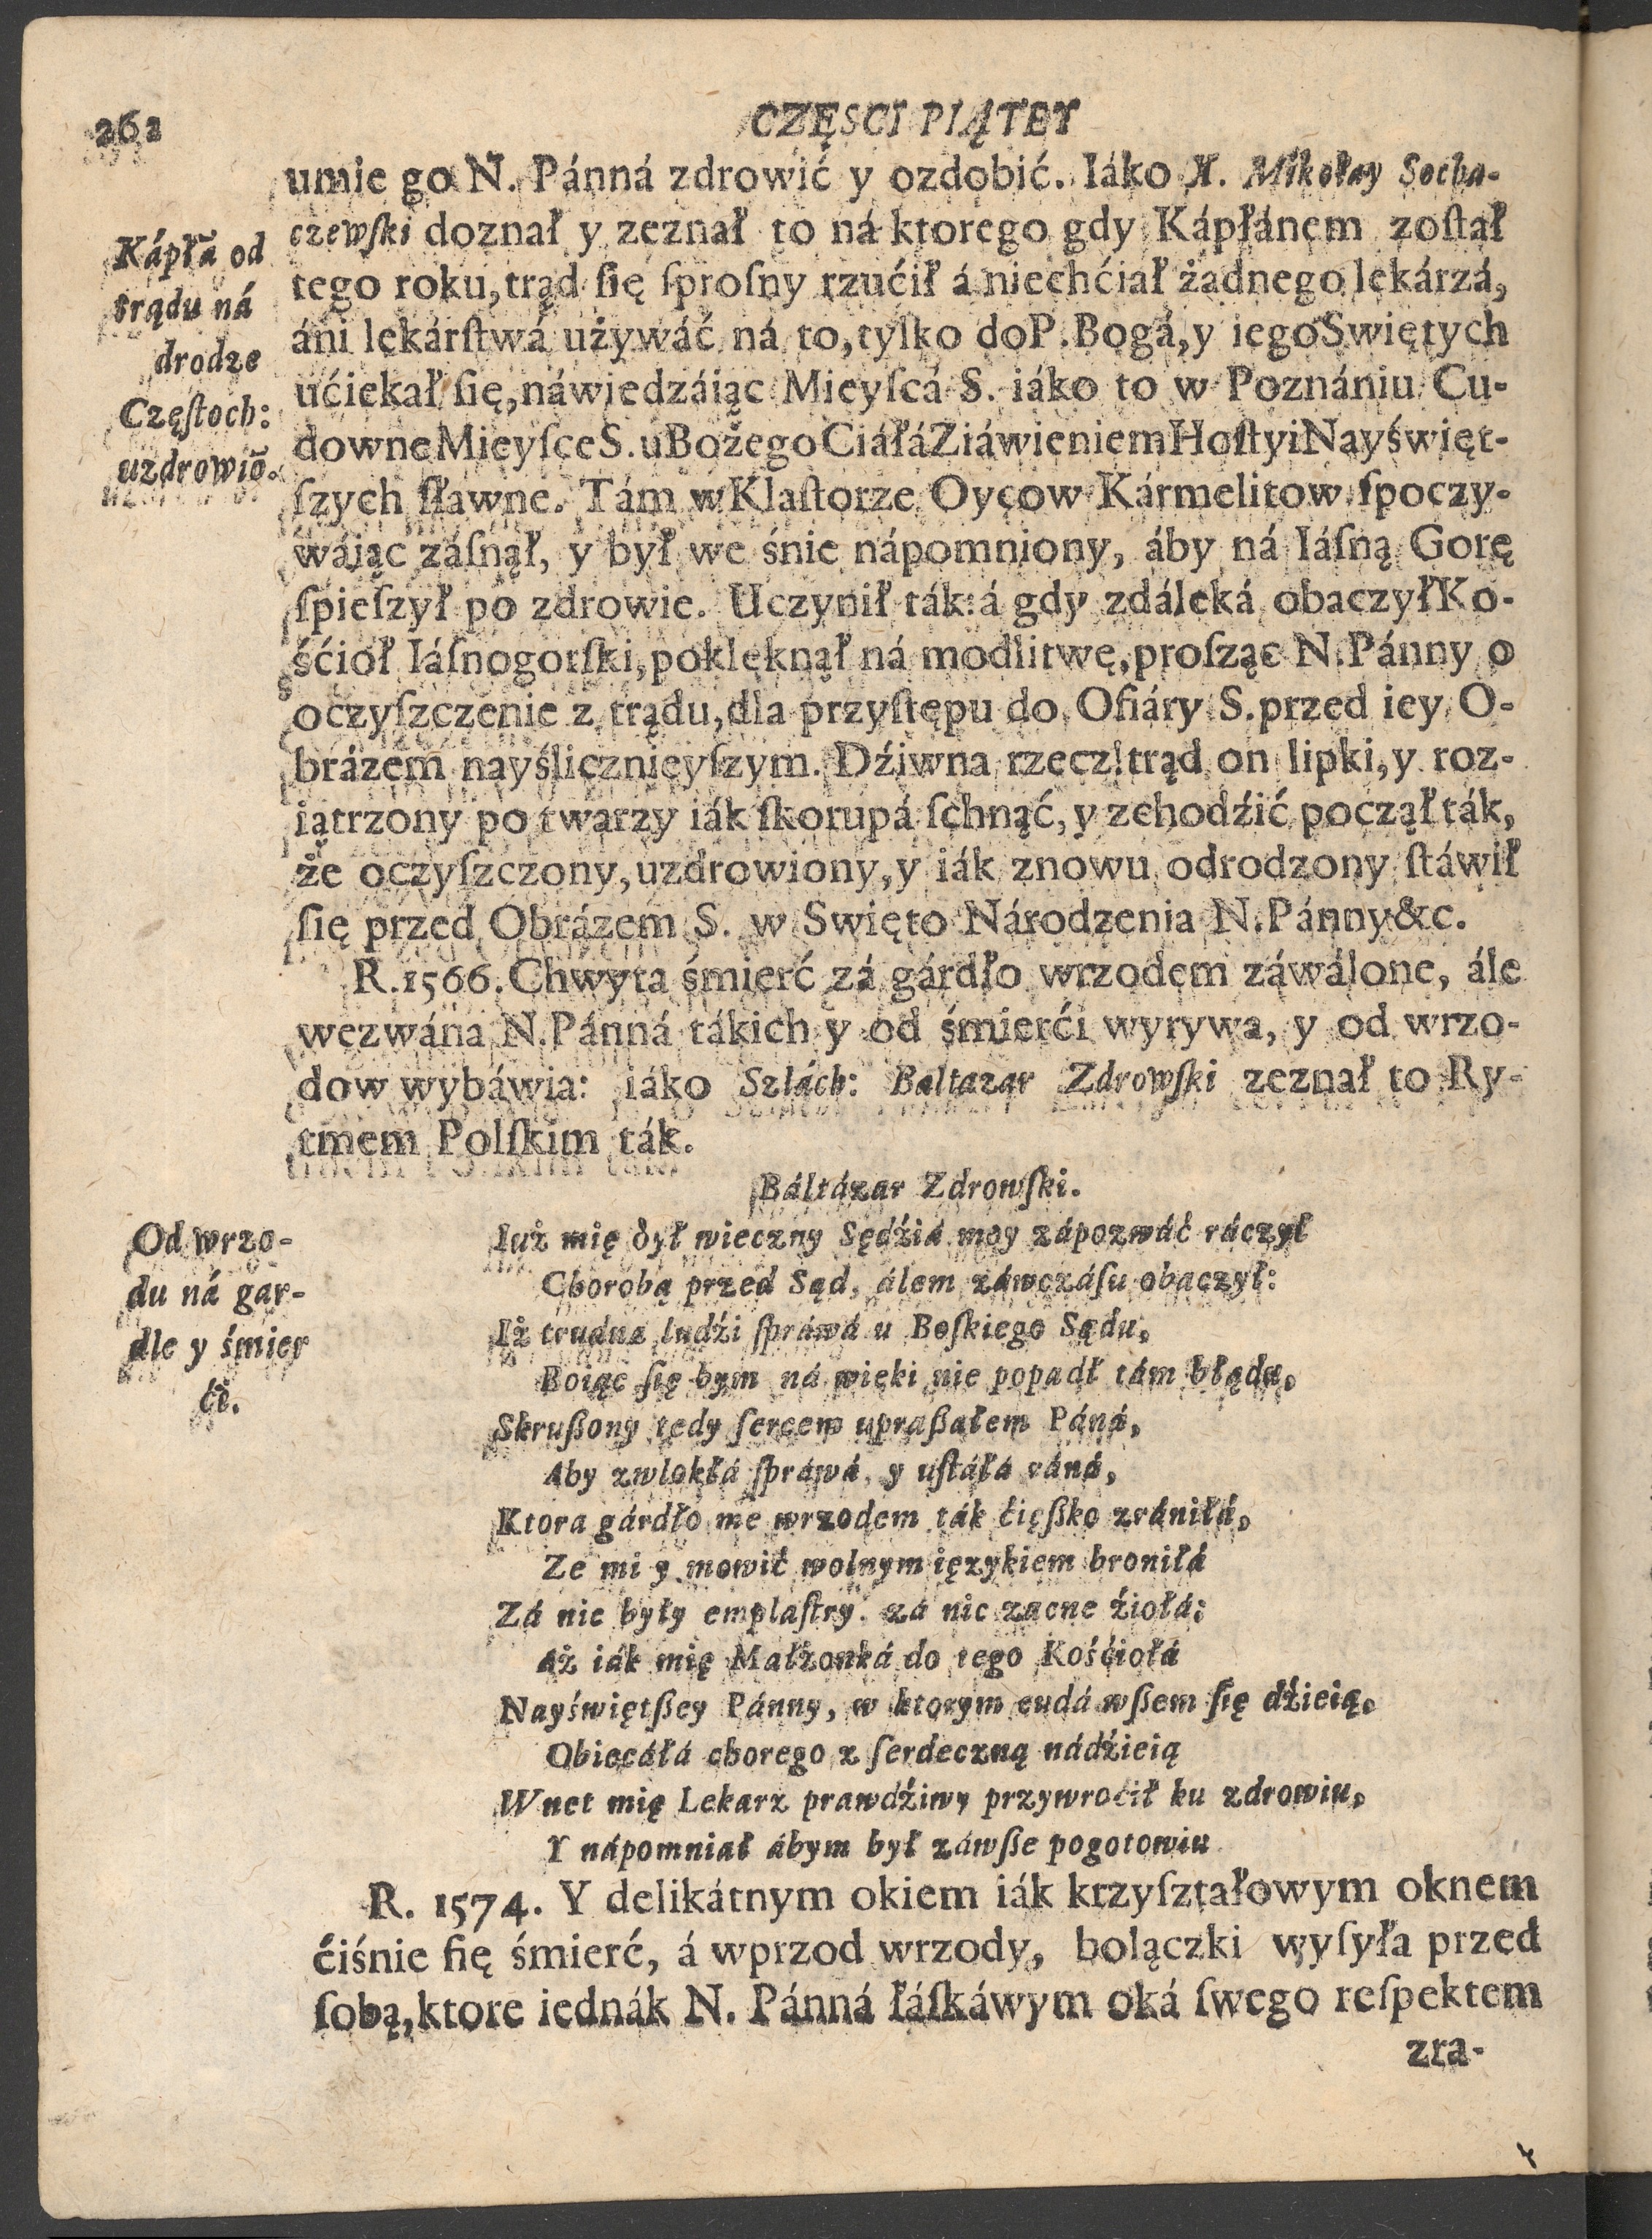 262
CZĘSCI PIĄTEY
umie go N. Pánná zdrowić y ozdobić. Iáko X. Mikołay Socha-
czewſki doznał y zeznał to ná ktorego gdy Kápłánem zoſtał
tego roku, trąd ſię ſproſny rzućił á niechćiał żadnego lekárzá,
áni lekárſtwá używáć ná to, tylko do P. Bogá, y iego Swiętych
ućiekał ſię, náwiedzáiąc Mieyſcá S. iáko to w Poznániu Cu-
downe Mieyſce S. u Bożego Ciáłá Ziáwieniem Hoſtyi Nayświęt-
ſzych ſławne. Tám w Klaſtorze Oycow Kármelitow ſpoczy-
wáiąc záſnął, y był we śnie nápomniony, áby ná Iáſną Gorę
ſpieſzył po zdrowie. Uczynił ták: á gdy zdáleká obaczył Ko-
śćioł Iáſnogorſki, poklęknął ná modlitwę, proſząc N. Pánny o
oczyſzczenie z trądu, dla przyſtępu do Ofiáry S. przed iey O-
brázem nayślicznieyſzym. Dźiwna rzecz! trąd on lipki, y roz-
iątrzony po twarzy iák ſkorupá ſchnąć, y zchodźić począł ták,
że oczyſzczony, uzdrowiony, y iák znowu odrodzony ſtáwił
ſię przed Obrázem S. w Swięto Národzenia N. Pánny &c.
Kápłã od
trądu ná
drodze
Częſtoch:
uzdrowiõ.
R. 1566. Chwyta śmierć zá gárdło wrzodem záwálone, ále
wezwána N. Pánná tákich y od śmierći wyrywa, y od wrzo-
dow wybáwia: iáko Szlách: Baltazar Zdrowſki zeznał to Ry-
tmem Polſkim ták.
Báltázar Zdrowſki.
Iuż mię był wieczny Sędźiá moy zápozwáć ráczył
Chorobą przed Sąd, álem záwczáſu obaczył:
Iż trudna ludźi ſpráwá u Boſkiego Sądu,
Boiąc ſię bym ná wieki nie popadł tám błędu,
Skrußony tedy ſercem upraßałem Páná,
Aby zwlokłá ſpráwá, y uſtáłá ráná,
Ktora gárdło me wrzodem ták ćięßko zrániłá,
Ze mi y mowić wolnym ięzykiem broniłá
Zá nic były emplaſtry. zá nic zacne źiołá:
Aż iák mię Małżonká do tego Kośćiołá
Nayświętßey Pánny, w ktorym cudá wßem ſię dźieią,
Obiecáłá chorego z ſerdeczną nádźieią
Wnet mię Lekarz prawdźiwy przywroćił ku zdrowiu,
Y nápomniał ábym był záwße pogotowiu
Od wrzo-
du ná gar-
dle y śmier
ći.
R. 1574. Y delikátnym okiem iák krzyſztałowym oknem
ćiśnie ſię śmierć, á wprzod wrzody, bolączki wyſyła przed
ſobą, ktore iednák N. Pánná łáſkáwym oká ſwego reſpektem
zra-